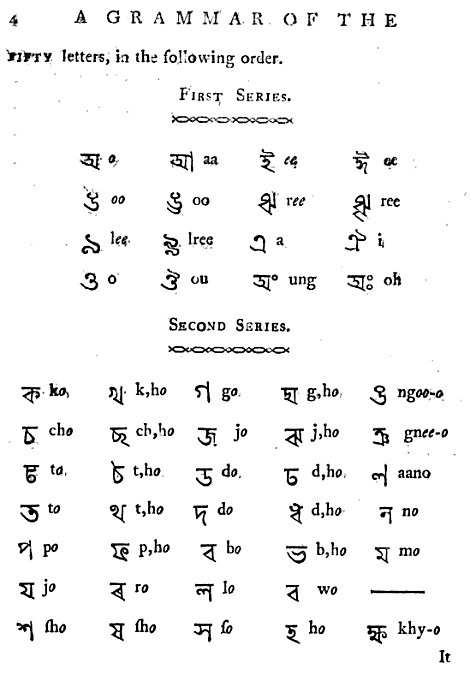 4 A GRAMMAR OF THE
FIFTY letters, in the following order.
FIRST SERIES.
অ o, আ aa ই ee ঈ ee
উ oo ঊ oo ঋ ree ৠ ree
ঌ lee ৡ lree এ a ঐ i
ও o ঔ ou অং ung অঃ oh
SECOND SERIES.
ক ko, খ k,ho গ go. ঘ g,ho ঙ ngoo-o
চ cho ছ ch,ho জ jo ঝ j,ho ঞ gnee-o
ট to, ঠ t,ho ড do. ঢ d,ho ণ aano
ত to থ t,ho দ do ধ d,ho ন no
প po ফ p,ho ব bo ভ b,ho ম mo
য jo ৰ ro ল lo ব wo
শ ſho ষ ſho স ſo হ ho ক্ষ khy-o
It